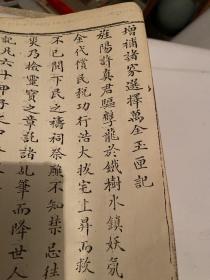 增補諸家選擇萬全玉匣記
旌陽許真君驅孽龍於鐵樹水鎮妖氛
金代償民稅功行浩大拔宅上昇而救
不已閔下民之禱祠祭雁不知禁忌往
災乃檢靈寶之章託諸乩筆而降世人
記凡六十甲子之